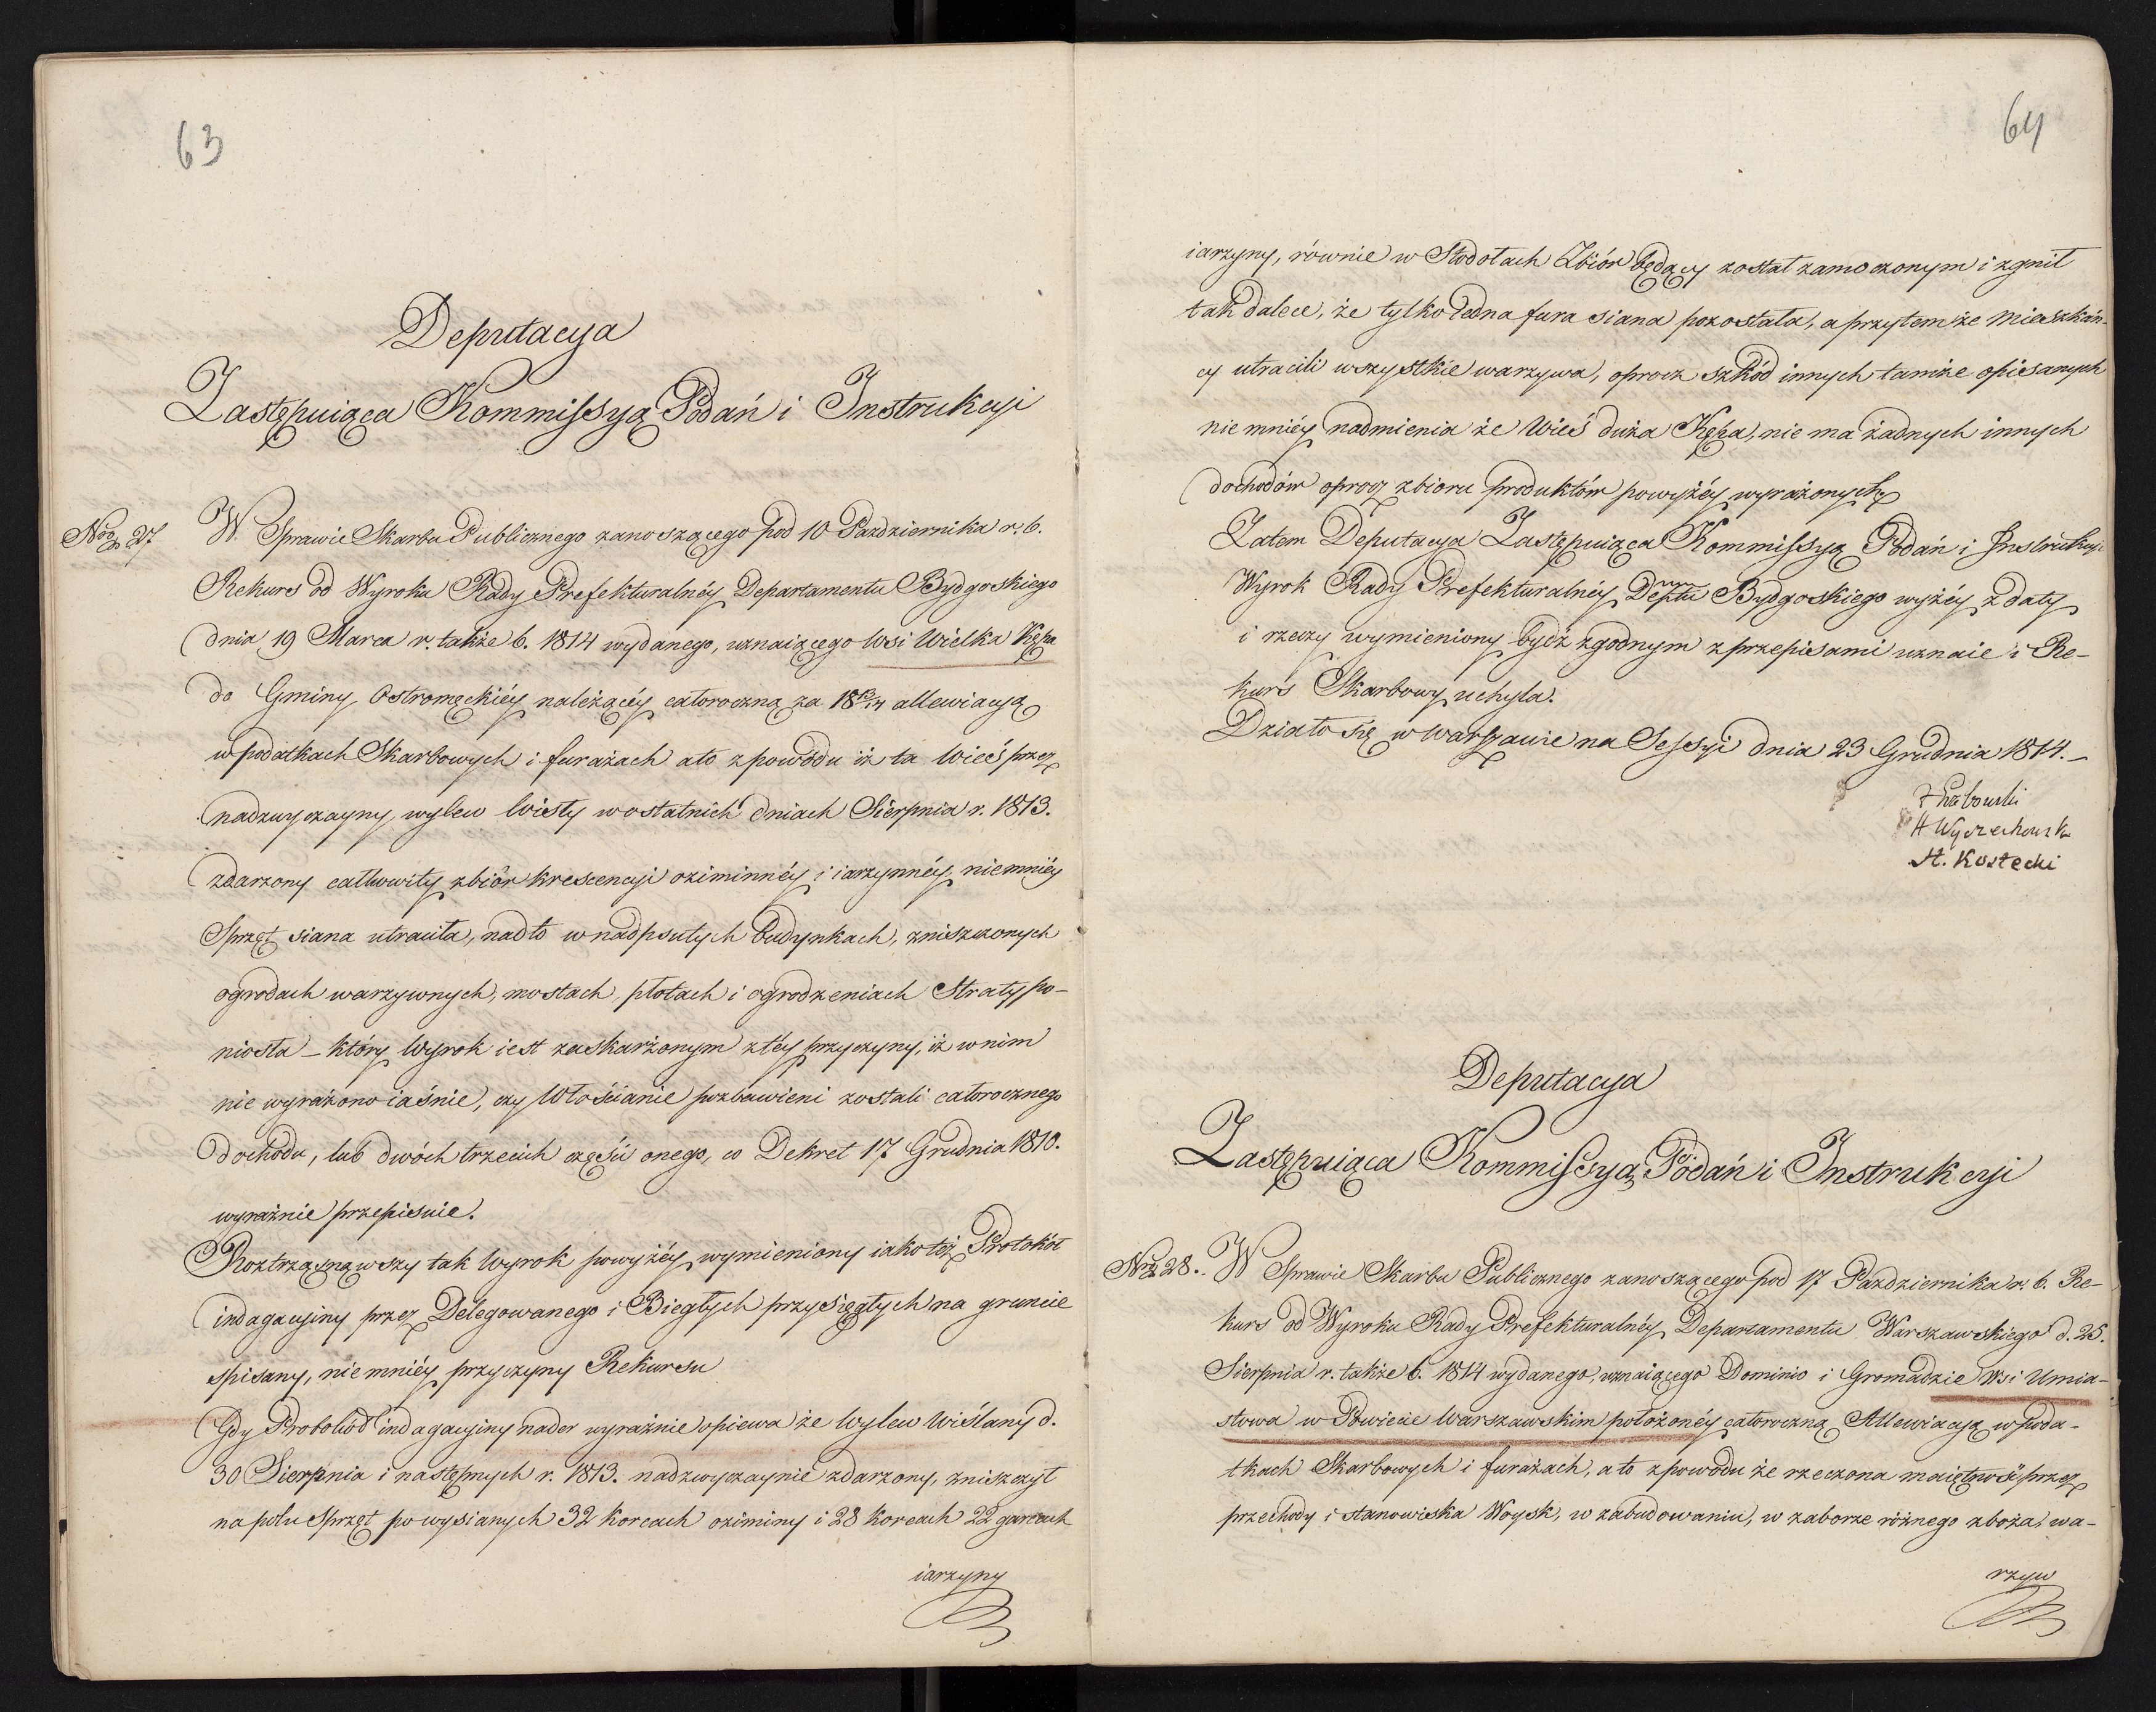 63
Deputacya
Zastępuiąca Kommissyą Podań i Instrukcyi
Nro 27. W. Sprawie Skarbu Publicznego zanoszącego pod 10 Pazdziernika r. b.
Rekurs od Wyroku Rady Prefekturalnéy Departamentu Bydgoskiego
dnia 19 Marca r. także b. 1814 wydanego, uznaiącego Wsi Wielka Kępa
do Gminy Ostromęckiéy należącéy całoroczną za 18 13/14 allewiacyą
w podatkach Skarbowych i furażach a to z powodu iż ta Wieś przez
nadzwyczayny wylew Wisły w ostatnich dniach Sierpnia r. 1813.
zdarzony całkowity zbiór krescencyi oziminnéy i iarzynnéy, niemniéy
Sprzęt siana utraciła, nadto w nadpsutych budynkach, zniszczonych
ogrodach warzywnych, mostach, płotach i ogrodzeniach Straty po-
niosła – który Wyrok iest zaskarżonym z téy przyczyny, iż w nim
nie wyrażono iaśnie, czy Włościanie pozbawieni zostali całorocznego
dochodu, lub dwóch trzecich części onego, co Dekret 17 Grudnia 1810.
wyraźnie przepisuie.
Roztrząsnąwszy tak Wyrok powyżéy wymieniony iako też Protokół
indagacyiny przez Delegowanego i Biegłych przysięgłych na gruncie
spisany, niemniéy przyczyny Rekursu
Gdy Protokół indagacyiny nader wyraźnie opiewa że Wylew Wiślany d.
30 Sierpnia i następnych r. 1813. nadzwyczaynie zdarzony, zniszczył
na polu Sprzęt po wysianych 32 korcach oziminy i 28 korcach 22 garcach
iarzyny
64
iarzyny, równie w Stodołach Zbiór będący został zamoczonym i zgnił
tak dalece, że tylko Jedna fura siana pozostała, a przytem że Mieszkań-
cy utracili wszystkie warzywa, oprocz szkód innych tamże opisanych
niemniéy nadmienia że Wieś duża Kępa, nie ma żadnych innych
dochodów oprocz zbioru produktów powyżéy wyrażonych
Zatem Deputacya Zastępuiąca Kommissyą Podań i Instrukcyi
Wyrok Rady Prefekturalnéy Deptu Bydgoskiego wyżéy z daty
i rzeczy wymieniony bydź zgodnym z przepisami uznaie i Re-
kurs Skarbowy uchyla.
Działo się w Warszawie na Sessyi dnia 23 Grudnia 1814. –
H Wyczechowski
A. Kostecki
Deputacya
Zastępuiąca Kommissyą Podań i Instrukcyi
Nro 28. W Sprawie Skarbu Publicznego zanoszącego pod 17 Pazdziernika r. b. Re-
kurs od Wyroku Rady Prefekturalnéy Departamentu Warszawskiego d. 25.
Sierpnia r. także b. 1814 wydanego, uznaiącego Dominio i Gromadzie Wsi Umia-
stowa w Powiecie Warszawskim położonéy całoroczną Allewiacyą w poda-
tkach Skarbowych i furażach, a to z powodu że rzeczona maiętność przez
przechody i stanowiska Woysk, w zabudowaniu, w zaborze różnego zboża, wa-
rzyw